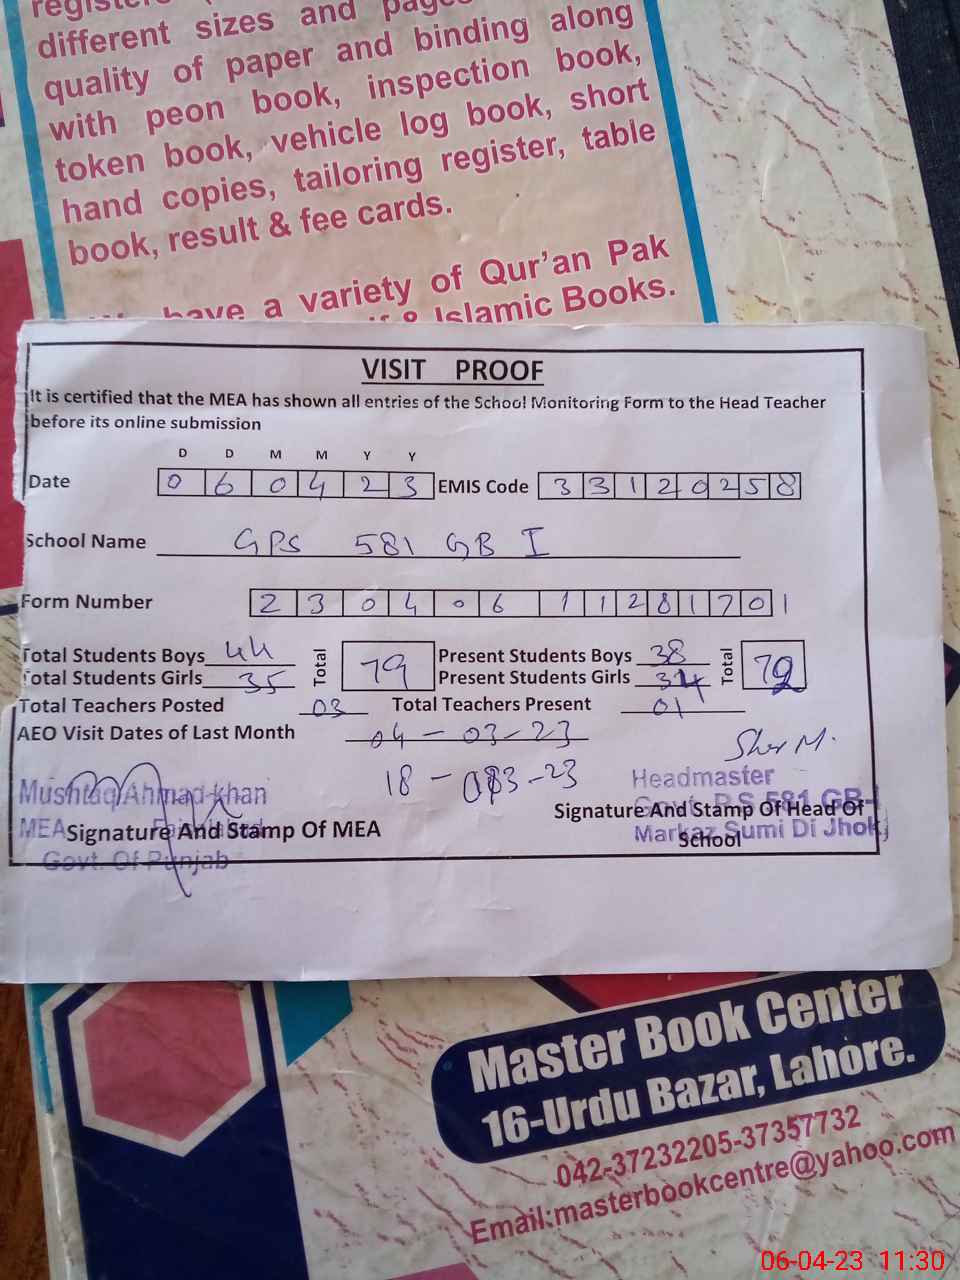 different sizes and
quality of paper and binding along
with peon book, inspection book,
token book, vehicle log book, short
hand copies, tailoring register, table
book, result & fee cards.
have a variety of Qur'an Pak
& Islamic Books.
VISIT PROOF
It is certified that the MEA has shown all entries of the School Monitoring Form to the Head Teacher
before its online submission
D D M M Y Y
Date 0 6 0 4 2 3 EMIS Code 3 3 1 2 0 2 5 8
School Name GPS 581 GB I
Form Number 2 3 0 4 0 6 1 1 2 8 1 7 0 1
Total Students Boys 44 Total 79 Present Students Boys 38 Total 72
Total Students Girls 35 Present Students Girls 34
Total Teachers Posted 03 Total Teachers Present 01
AEO Visit Dates of Last Month 04-03-23
18-03-23
Sher M.
Mushtaq Ahmad khan Headmaster
Signature And Stamp Of Head Of
Govt. P.S 581 GB-I
MEA Faisalabad
Signature And Stamp Of MEA
Markaz Sumi Di Jhok,
School
Govt. Of Punjab
Master Book Center
16-Urdu Bazar, Lahore.
042-37232205-37357732
Email:masterbookcentre@yahoo.com
06-04-23 11:30